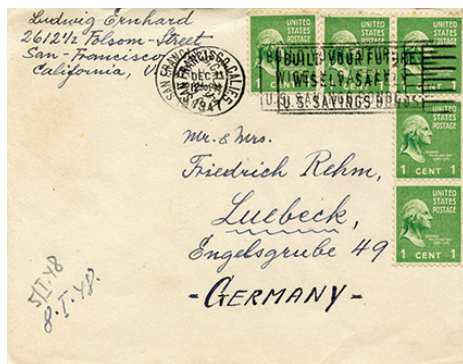 Ludwig Ernhard
2612½ Folsom-Street
San-Francisco
California,
SAN FRANCISCO, CALIF.
DEC 31
1947
BUILD YOUR FUTURE
WISELY SAFELY
U.S. SAVINGS BONDS
UNITED
STATES
POSTAGE
1 CENT 1
UNITED
STATES
POSTAGE
1 CENT 1
UNITED
STATES
POSTAGE
1 CENT 1
Mr. & Mrs.
Friedrich Rehm,
Luebeck,
Engelsgrube 49
- GERMANY -
5/I.48
8.I.48.